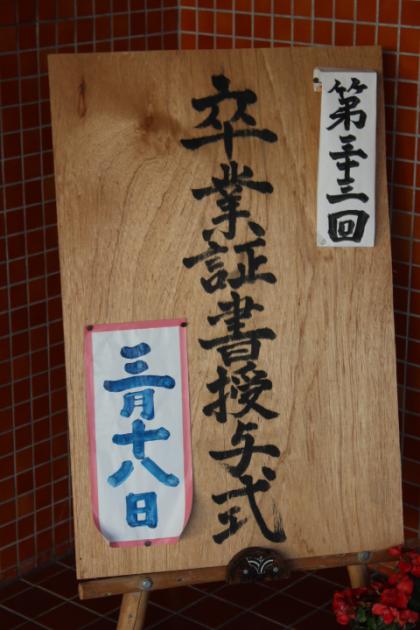 第三十三回
卒業証書授与式
三月十八日